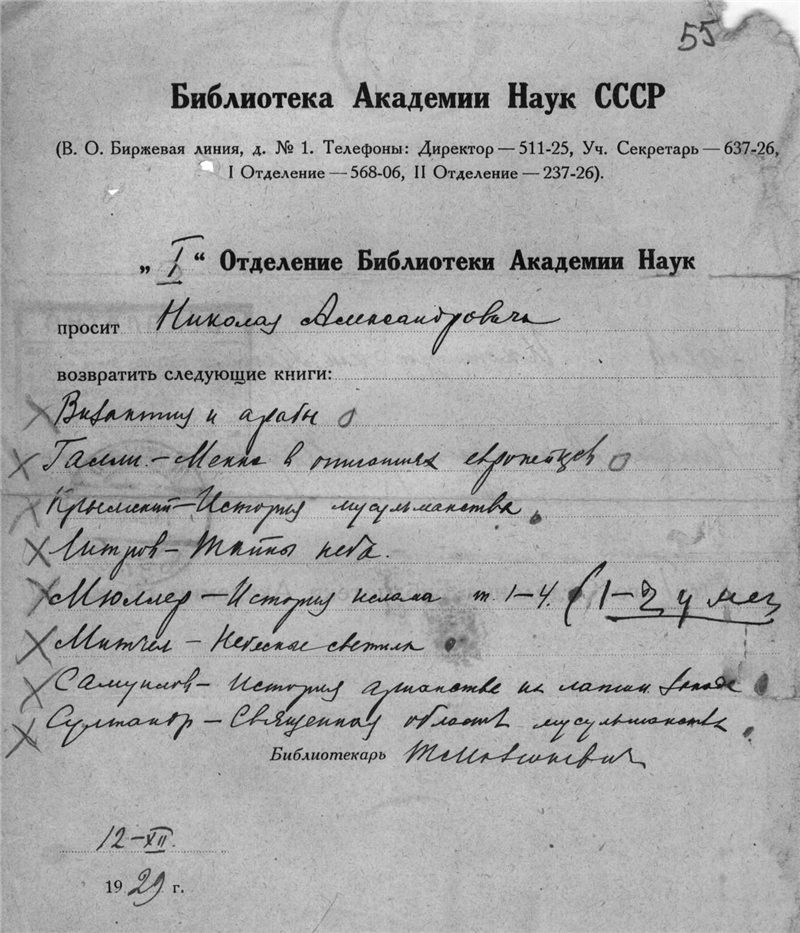 55
Библиотека Академии Наук СССР
(В. О. Биржевая линия, д. № 1. Телефоны: Директор — 511-25, Уч. Секретарь — 637-26,
I Отделение — 568-06, II Отделение — 237-26).
„ I “ Отделение Библиотеки Академии Наук
просит Николая Александровича
возвратить следующие книги:
Византия и арабы
Галли. – Мекка в описаниях европейцев
Крымский – История мусульманства
Литров – Тайны неба.
Мюллер – История ислама т. 1–4. (1–2 у меня
Митчел – Небесные светила
Самуилов – История арианства на латин. западе
Султанов – Священная область мусульманства
Библиотекарь
12–XII.
1929 г.